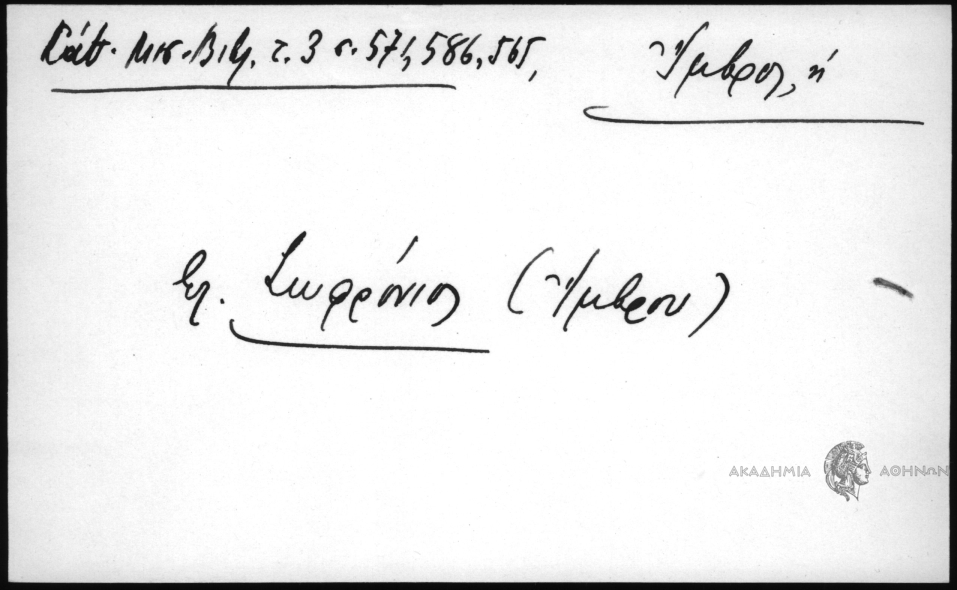 Κάθ. Μικ. Βιβλ. τ. 3 σ. 571, 586, 565, Ἴμβρος, ἡ
Ἐπ. Σωφρόνιος (Ἴμβρου)
ΑΚΑΔΗΜΙΑ ΑΘΗΝΩΝ